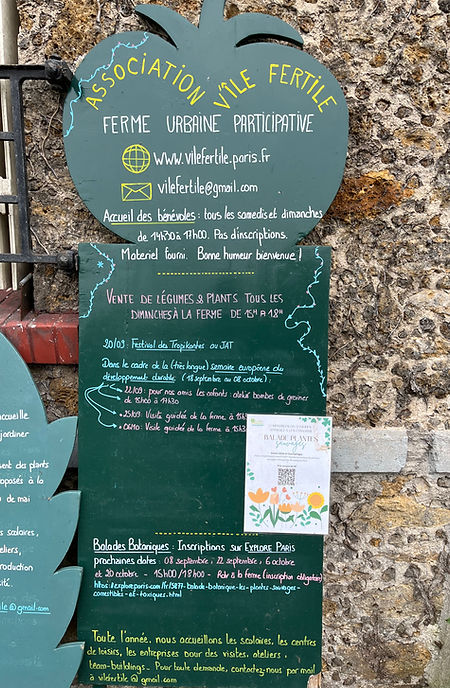 ASSOCIATION V'ÎLE FERTILE
FERME URBAINE PARTICIPATIVE
www.vilefertile.paris.fr
vilefertile@gmail.com
Accueil des bénévoles : tous les samedis et dimanches
de 14h30 à 17h00. Pas d'inscriptions.
Materiel fourni. Bonne humeur bienvenue !
VENTE DE LÉGUMES & PLANTS TOUS LES
DIMANCHES À LA FERME DE 15H À 18H
20/09 : Festival des Tropikantes au JAT
Dans le cadre de la (très longue) semaine européenne du
développement durable (18 septembre au 08 octobre) :
22/09 : pour nos amis les enfants : atelier bombes de graines
de 15h00 à 17h30
25/09 : Visite guidée de la ferme à 15h
06/10 : Visite guidée de la ferme à 15h
BALADE PLANTES
sauvages
Balades Botaniques : Inscriptions sur EXPLORE PARIS
prochaines dates : 08 septembre, 22 septembre, 6 octobre
et 20 octobre - 15h00/18h00 - Rdv à la ferme (inscription obligatoire)
Toute l'année, nous accueillons les scolaires, les centres
de loisirs, les entreprises pour des visites, ateliers,
team-buildings. Pour toute demande, contactez-nous par mail
à vilefertile@gmail.com
accueille
jardiner
ent des plants
oposées à la
de mai
scolaires,
teliers,
roduction
ité.
tile@gmail.com